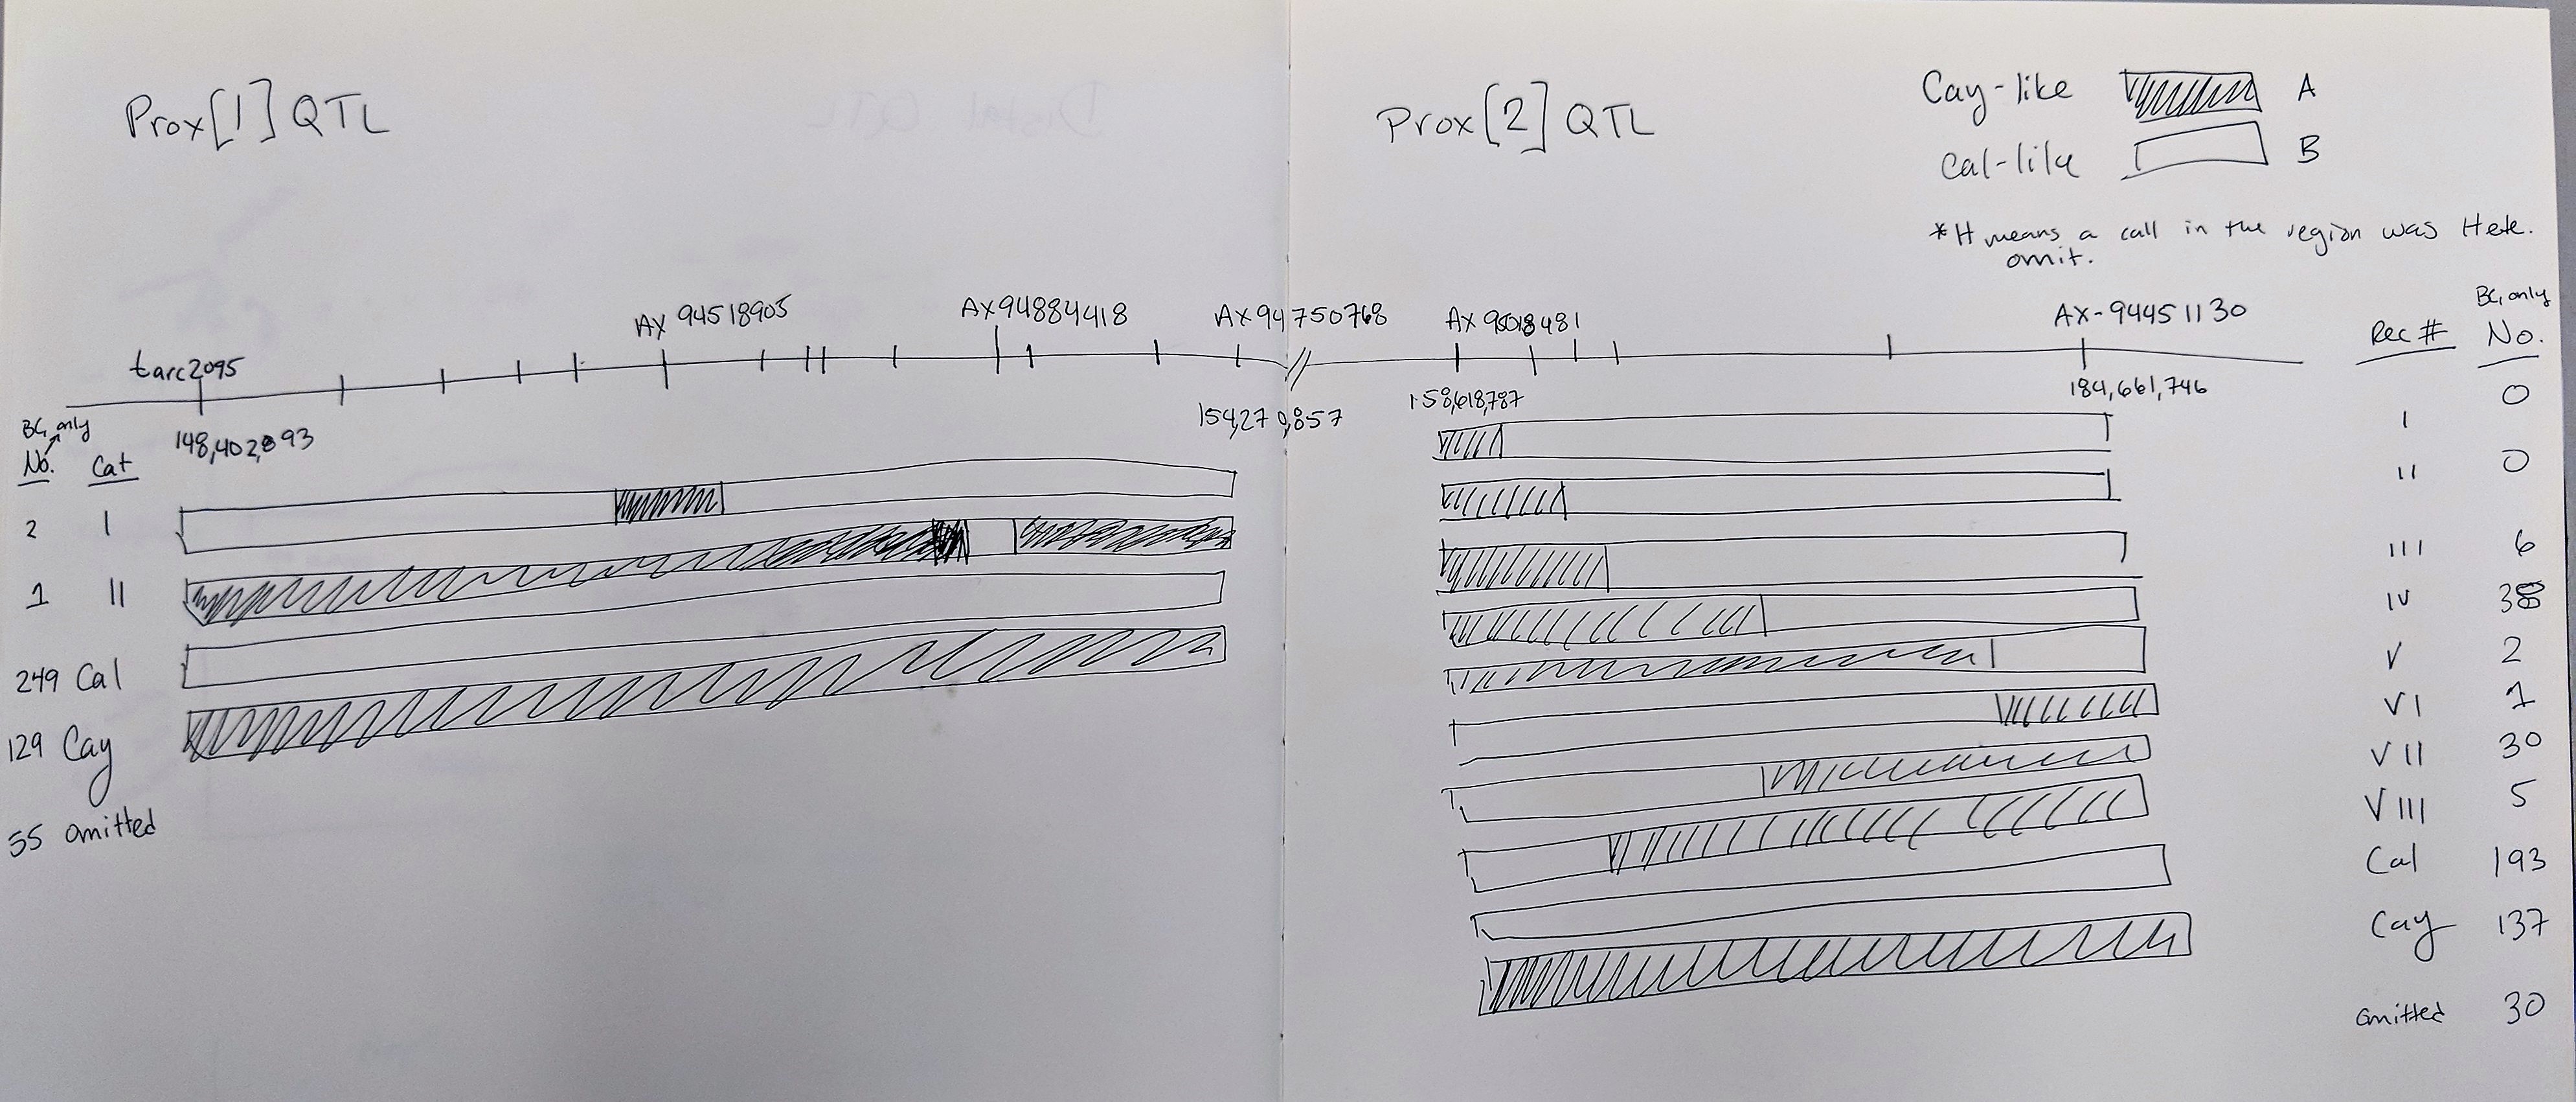 Prox[1] QTL
Prox[2] QTL
Cay-like A
Cal-like B
*H means a call in the region was Hete.
omit.
tarc2095
AX 94518905
AX94884418
AX94750768
AX95018481
AX-94451130
148,402,893
154,279,857
158,618,787
184,661,746
BC1 only
No. Cat
2 I
1 II
249 Cal
129 Cay
55 omitted
BC1 only
Rec # No.
I 0
II 0
III 6
IV 38
V 2
VI 1
VII 30
VIII 5
Cal 193
Cay 137
omitted 30